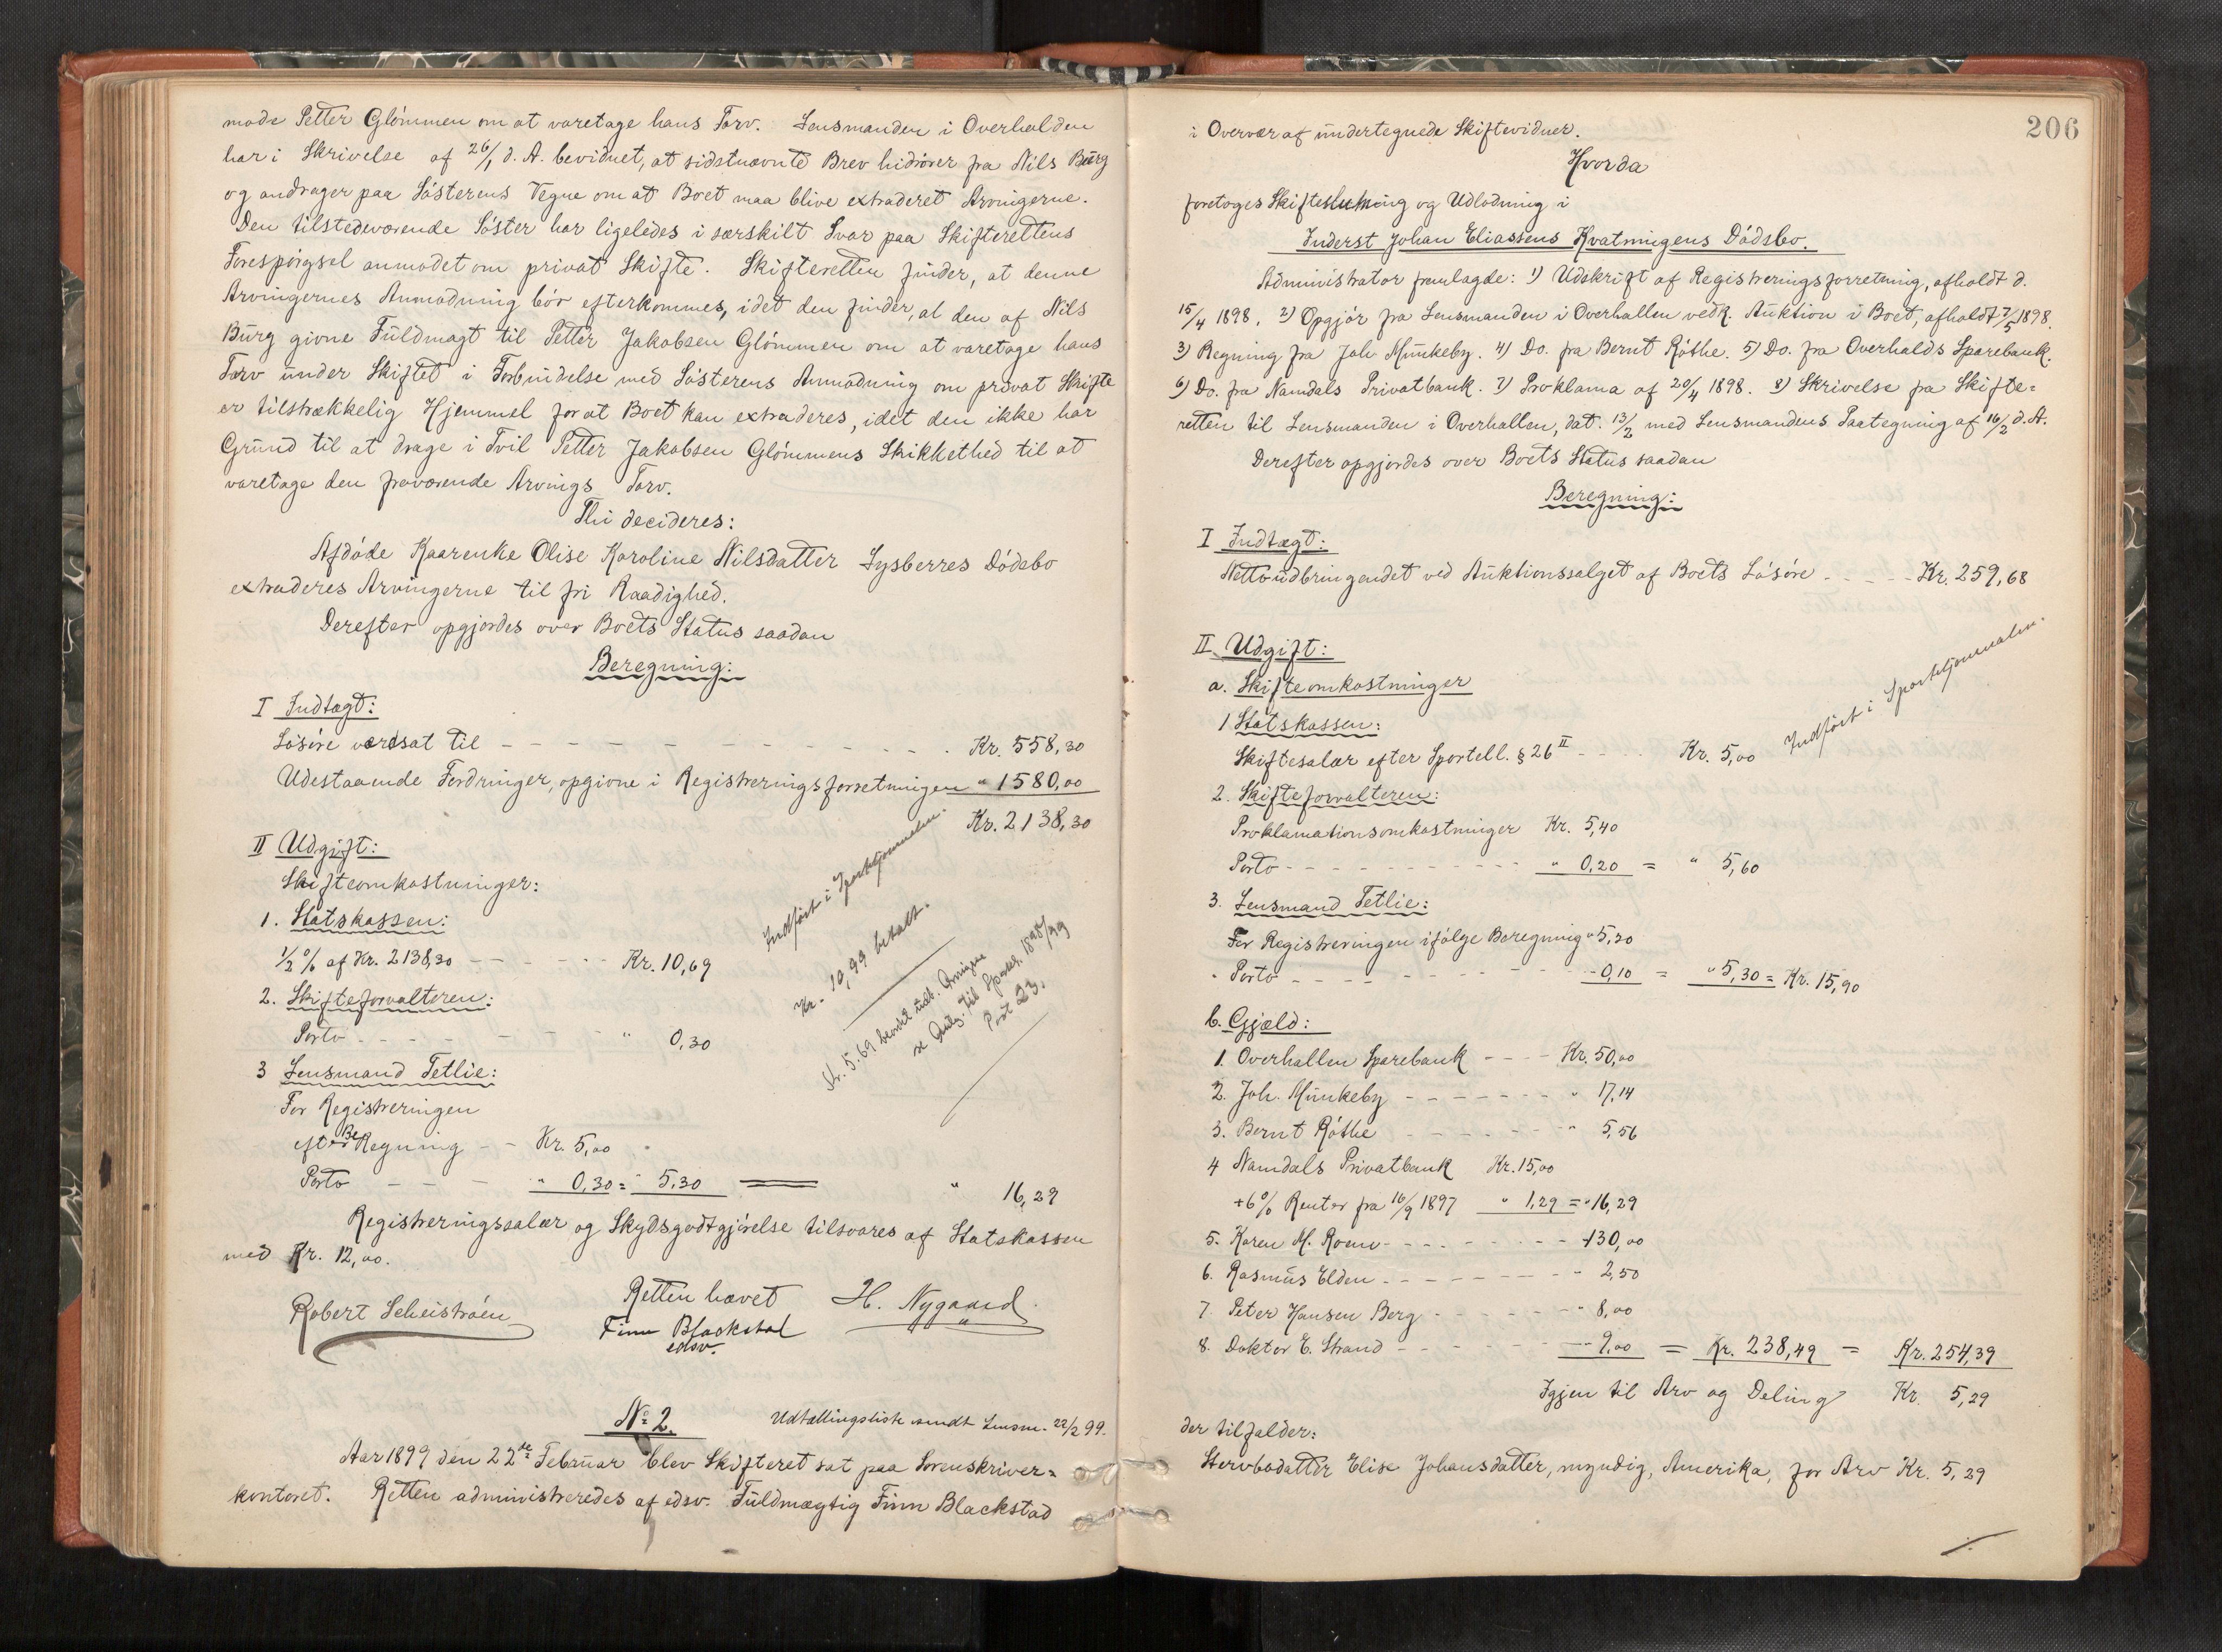 mode Petter Glömmen om at varetage hans Tarv. Lensmanden i Overhalden
har i Skrivelse af 26/1 d. A. bevidnet, at sidstnævnte Brev hidrører fra Nils Burg
og andrager paa Søsterens Vegne om at Boet maa blive extraderet Arvingerne.
Den tilstedeværende Søster har ligeledes i særskilt Svar paa Skifterettens
Forespørgsel anmodet om privat Skifte. Skifteretten finder, at denne
Arvingernes Anmodning bör efterkommes, idet den finder, at den af Nils
Burg givne Fuldmagt til Petter Jakobsen Glömmen om at varetage hans
Tarv under Skiftet i Forbindelse med Søsterens Anmodning om privat Skifte
er tilstrækkelig Hjemmel for at Boet kan extraderes, idet den ikke har
Grund til at drage i Tvil Petter Jakobsen Glömmens Skikkethed til at
varetage den fraværende Arvings Tarv.
Thi decideres:
Afdöde Kaarenke Olise Karoline Nilsdatter Lysberres Dödsbo
extraderes Arvingerne til fri Raadighed.
Derefter opgjordes over Boets Status saadan
Beregning:
I Indtægt:
Lösöre værdsat til - - - - - - - - - - - Kr. 558,30
Udestaaende Fordringer, opgivne i Registreringsforretningen " 1580,00
Kr. 2138,30
II Udgift:
Skifteomkostninger:
1. Statskassen:
1/2 % af Kr. 2138,30 - - - - - Kr. 10,69
2. Skifteforvalteren:
Porto - - - - - - - " 0,30
3 Lensmand Tetlie:
For Registreringen
efter BeRegning - - Kr. 5,00
Porto - - - " 0,30 = " 5,30 = " 16,29
Indført i Sporteljournalen.
Kr. 10,99 betalt.
Kr. 5.69
1898/99
Post 23.
Registreringssalær og Skydsgodtgjörelse tilsvares af Statskassen
med Kr. 12,00.
Retten hævet
Robert Scheiströen
H. Nygaard
Finn Blackstad
edsv.
No 2. Udtællingsliste sendt Lensm. 22/2 99.
Aar 1899 den 22de Februar blev Skifteret sat paa Sorenskriver=
kontoret. Retten administreredes af edsv. Fuldmægtig Finn Blackstad
206
i Overvær af undertegnede Skiftevidner.
Hvorda
foretoges Skifteslutning og Udlodning i
Inderst Johan Eliassens Kvatningens Dödsbo.
Administrator fremlagde: 1) Udskrift af Registreringsforretning, afholdt d.
15/4 1898. 2) Opgjör fra Lensmanden i Overhallen vedk. Auktion i Boet, afholdt 7/5 1898.
3) Regning fra Joh Munkeby. 4) Do. fra Bernt Röthe. 5) Do. fra Overhalds Sparebank.
6) Do. fra Namdals Privatbank. 7) Proklama af 20/4 1898. 8) Skrivelse fra Skifte=
retten til Lensmanden i Overhallen, dat. 13/2 med Lensmandens Paategning af 16/2 d. A.
Derefter opgjordes over Boets Status saadan
Beregning:
I Indtægt:
Nettoudbringendet ved Auktionssalget af Boets Lösöre - - - - - Kr. 259,68
II. Udgift:
a. Skifteomkostninger
1 Statskassen:
Skiftesalær efter Sportell. § 26 II - - - - Kr. 5,00
Indført i Sporteljournalen.
2. Skifteforvalteren:
Proklamationsomkostninger Kr. 5,40
Porto - - - - - - - - - " 0,20 = " 5,60
3. Lensmand Tetlie:
For Registreringen ifölge Beregning " 5,20
" Porto - - - - - - - - - - 0,10 = " 5,30 = Kr. 15,90
b. Gjæld:
1. Overhallen Sparebank - - - - Kr. 50,00
2. Joh. Munkeby - - - - - - - " 17,14
3. Bernt Röthe - - - - - - - " 5,56
4 Namdals Privatbank Kr. 15,00
+ 6% Renter fra 16/9 1897 " 1,29 = " 16,29
5. Karen M. Roem - - - - - - - 130,00
6. Rasmus Elden - - - - - - - - " 2,50
7. Peter Hansen Berg - - - - - - " 8,00
8. Doktor E. Strand - - - - - - - 9,00 = Kr. 238,49 = Kr. 254,39
Igjen til Arv og Deling Kr. 5,29
der tilfalder:
Stervbodatter Elise Johansdatter, myndig, Amerika, for Arv Kr. 5,29